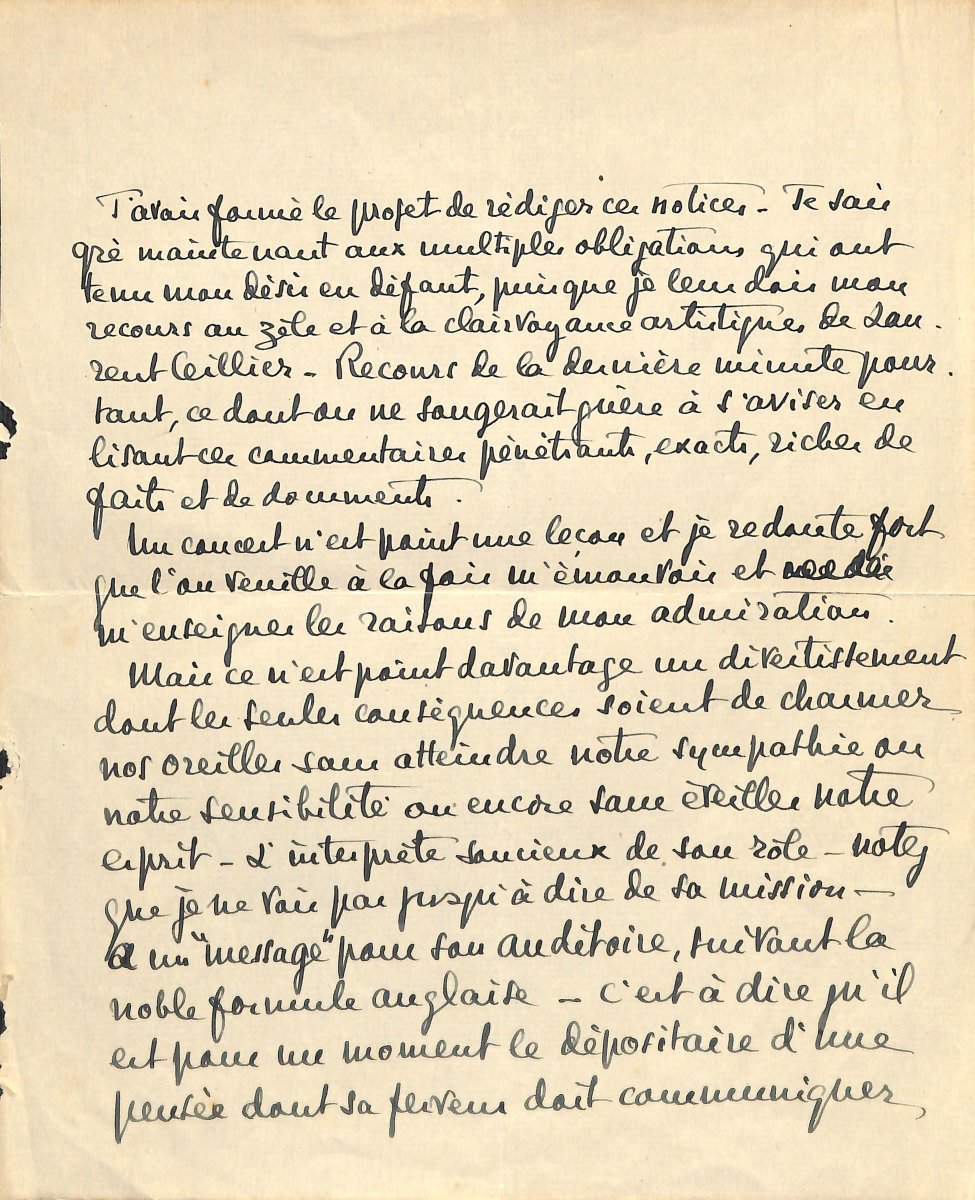 J'avais formé le projet de rédiger ces notices - Je sais
gré maintenant aux multiples obligations qui ont
tenu mon désir en défaut, puisque je leur dois mon
recours au zèle et à la clairvoyance artistiques de Lau-
rent Ceillier - Recours de la dernière minute pour-
tant, ce dont on ne songerait guère à s'aviser en
lisant ces commentaires pénétrants, exacts, riches de
faits et de documents.
Un concert n'est point une leçon et je redoute fort
que l'on veuille à la fois m'émouvoir et
m'enseigner les raisons de mon admiration.
Mais ce n'est point davantage un divertissement
dont les seules conséquences soient de charmer
nos oreilles sans atteindre notre sympathie ou
notre sensibilité ou encore sans éveiller notre
esprit - L'interprète soucieux de son rôle - notez
que je ne vais pas jusqu'à dire de sa mission -
a un "message" pour son auditoire, suivant la
noble formule anglaise - c'est à dire qu'il
est pour un moment le dépositaire d'une
pensée dont sa ferveur doit communiquer